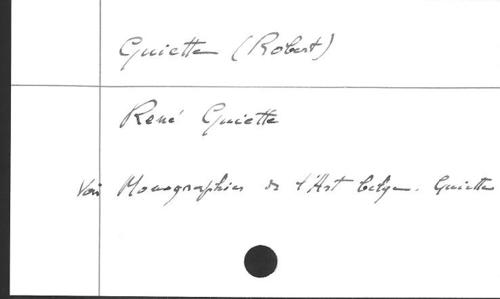 Guiette (Robert)
René Guiette
Voir Monographies de l'Art belge. Guiette